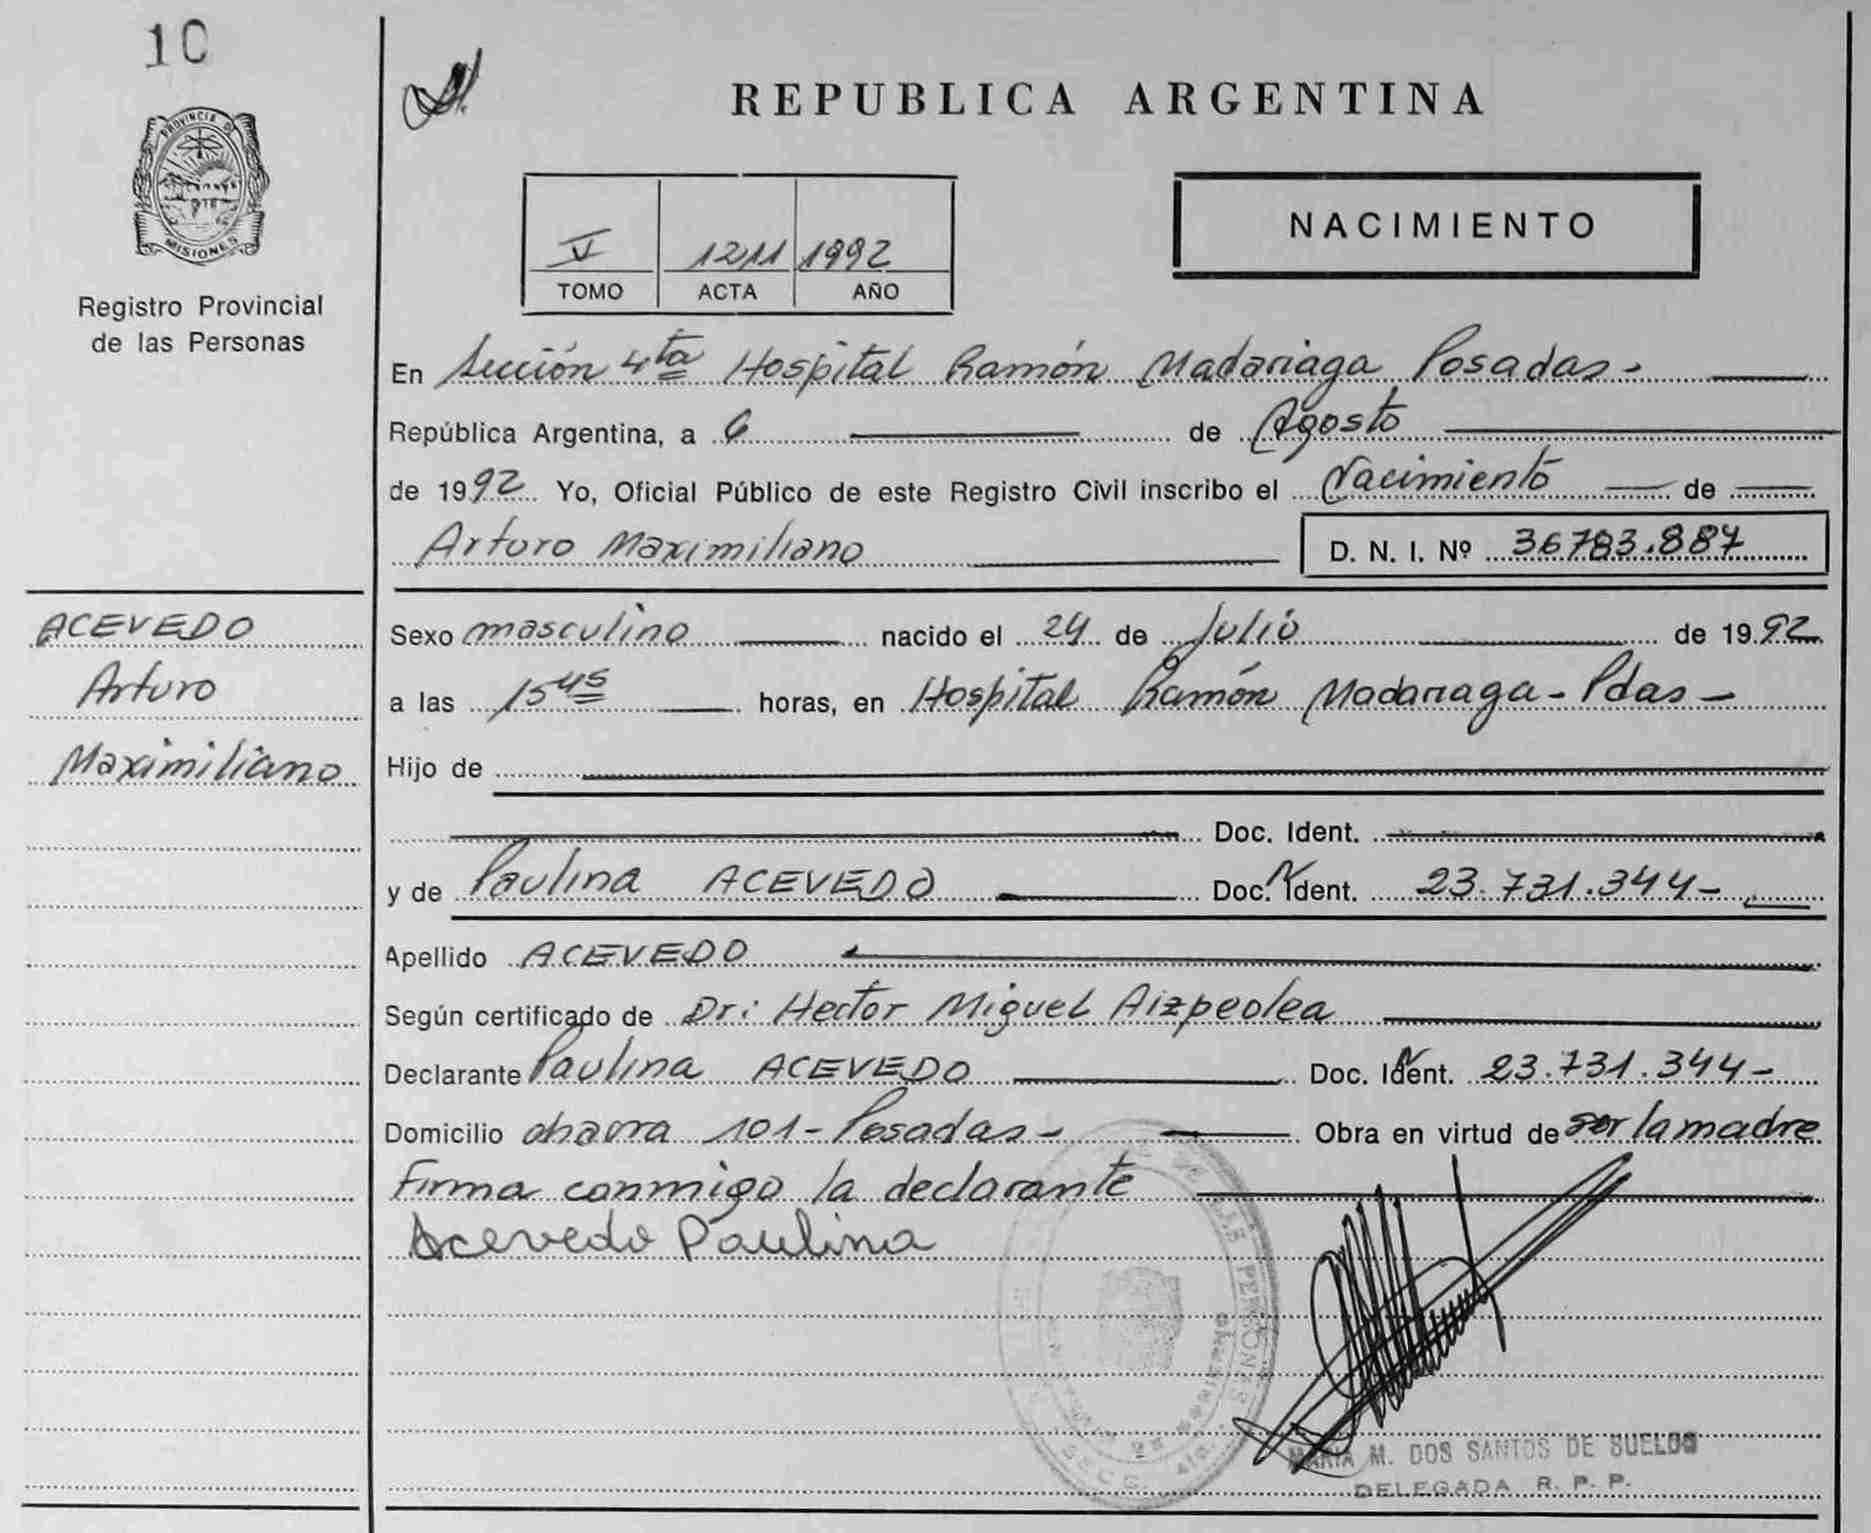 10
PROVINCIA D
MISIONES
Registro Provincial
de las Personas
REPUBLICA ARGENTINA
V 1211 1992
TOMO ACTA AÑO
NACIMIENTO
En Sección 4ta Hospital Ramón Madariaga Posadas-
República Argentina, a 6 de Agosto
de 1992 Yo, Oficial Público de este Registro Civil inscribo el Nacimiento de
Arturo Maximiliano D. N. I. Nº 36783.887
ACEVEDO
Arturo
Maximiliano
Sexo masculino nacido el 24 de Julio de 1992
a las 15 45 horas, en Hospital Ramón Madariaga - Pdas -
Hijo de
Doc. Ident.
y de Paulina ACEVEDO Doc. Ident. 23.731.344-
Apellido ACEVEDO
Según certificado de Dr: Hector Miguel Aizpeolea
Declarante Paulina ACEVEDO Doc. Ident. 23.731.344-
Domicilio 101 - Posadas - Obra en virtud de ser la madre
Firma conmigo la declarante
Acevedo Paulina
MARIA M. DOS SANTOS DE SUELOS
DELEGADA R. P. P.